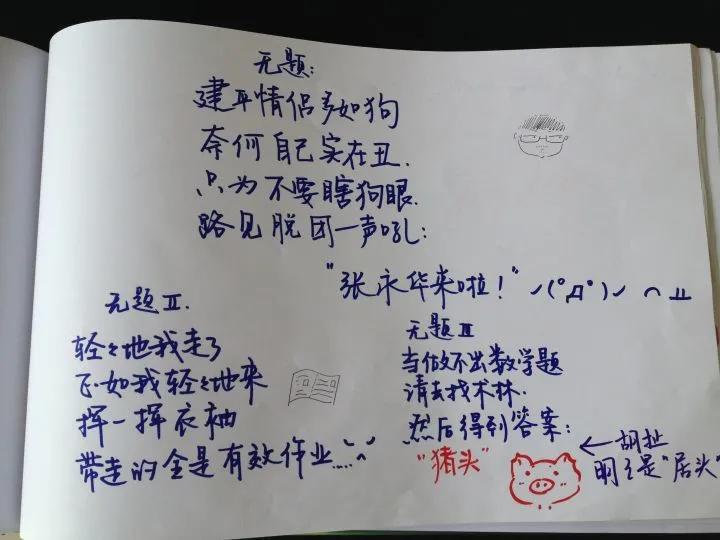 无题:
建平情侣多如狗
奈何自己实在丑.
只为不要瞎狗眼.
路见脱团一声吼:
"张永华来啦!"ノ(゜Д゜)ノ ︵ ┻┻
无题 II.
轻々地我走了
正如我轻々地来
挥一挥衣袖
带走的全是有效作业....
无题 III
当做不出数学题
请去找木林.
然后得到答案:
"猪头"
←胡扯
明明是"居头"